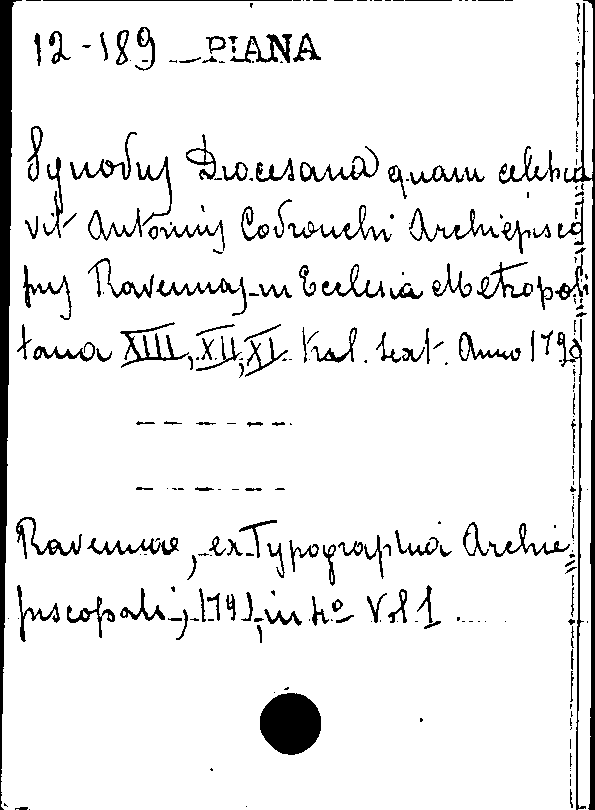 12-189 PIANA
Synodus Diocesana quam celebra
vit Antonius Codronchi Archiepisco
pus Ravennas in Ecclesia Metropoli
tana XIII, XII, XI Kal. Sext. Anno 1790
Ravennae, ex Typographia Archie
piscopali, 1791, in 4º Vol 1.